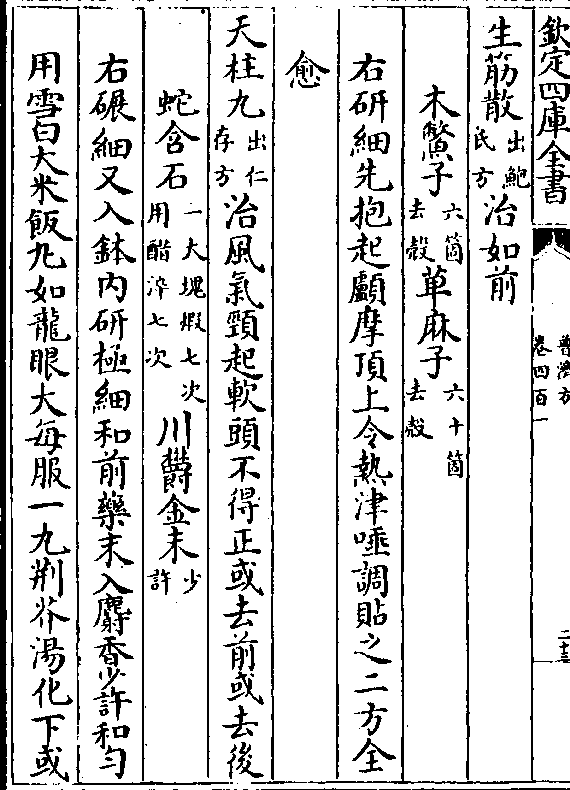 欽定四庫全書
普濟方
卷四百一
二十三
生筋散出鮑氏方治如前
木鱉子六箇去殼草麻子六十箇去殼
右研細先抱起顱摩頂上令熱津唾調貼之二方全
愈
天柱丸出仁存方治風氣頸起軟頭不得正或去前或去後
蛇含石一大塊煆七次用醋淬七次川鬱金末少許
右碾細又入鉢内研極細和前藥末入麝香少許和勻
用雪白大米飯丸如龍眼大每服一丸荆芥湯化下或